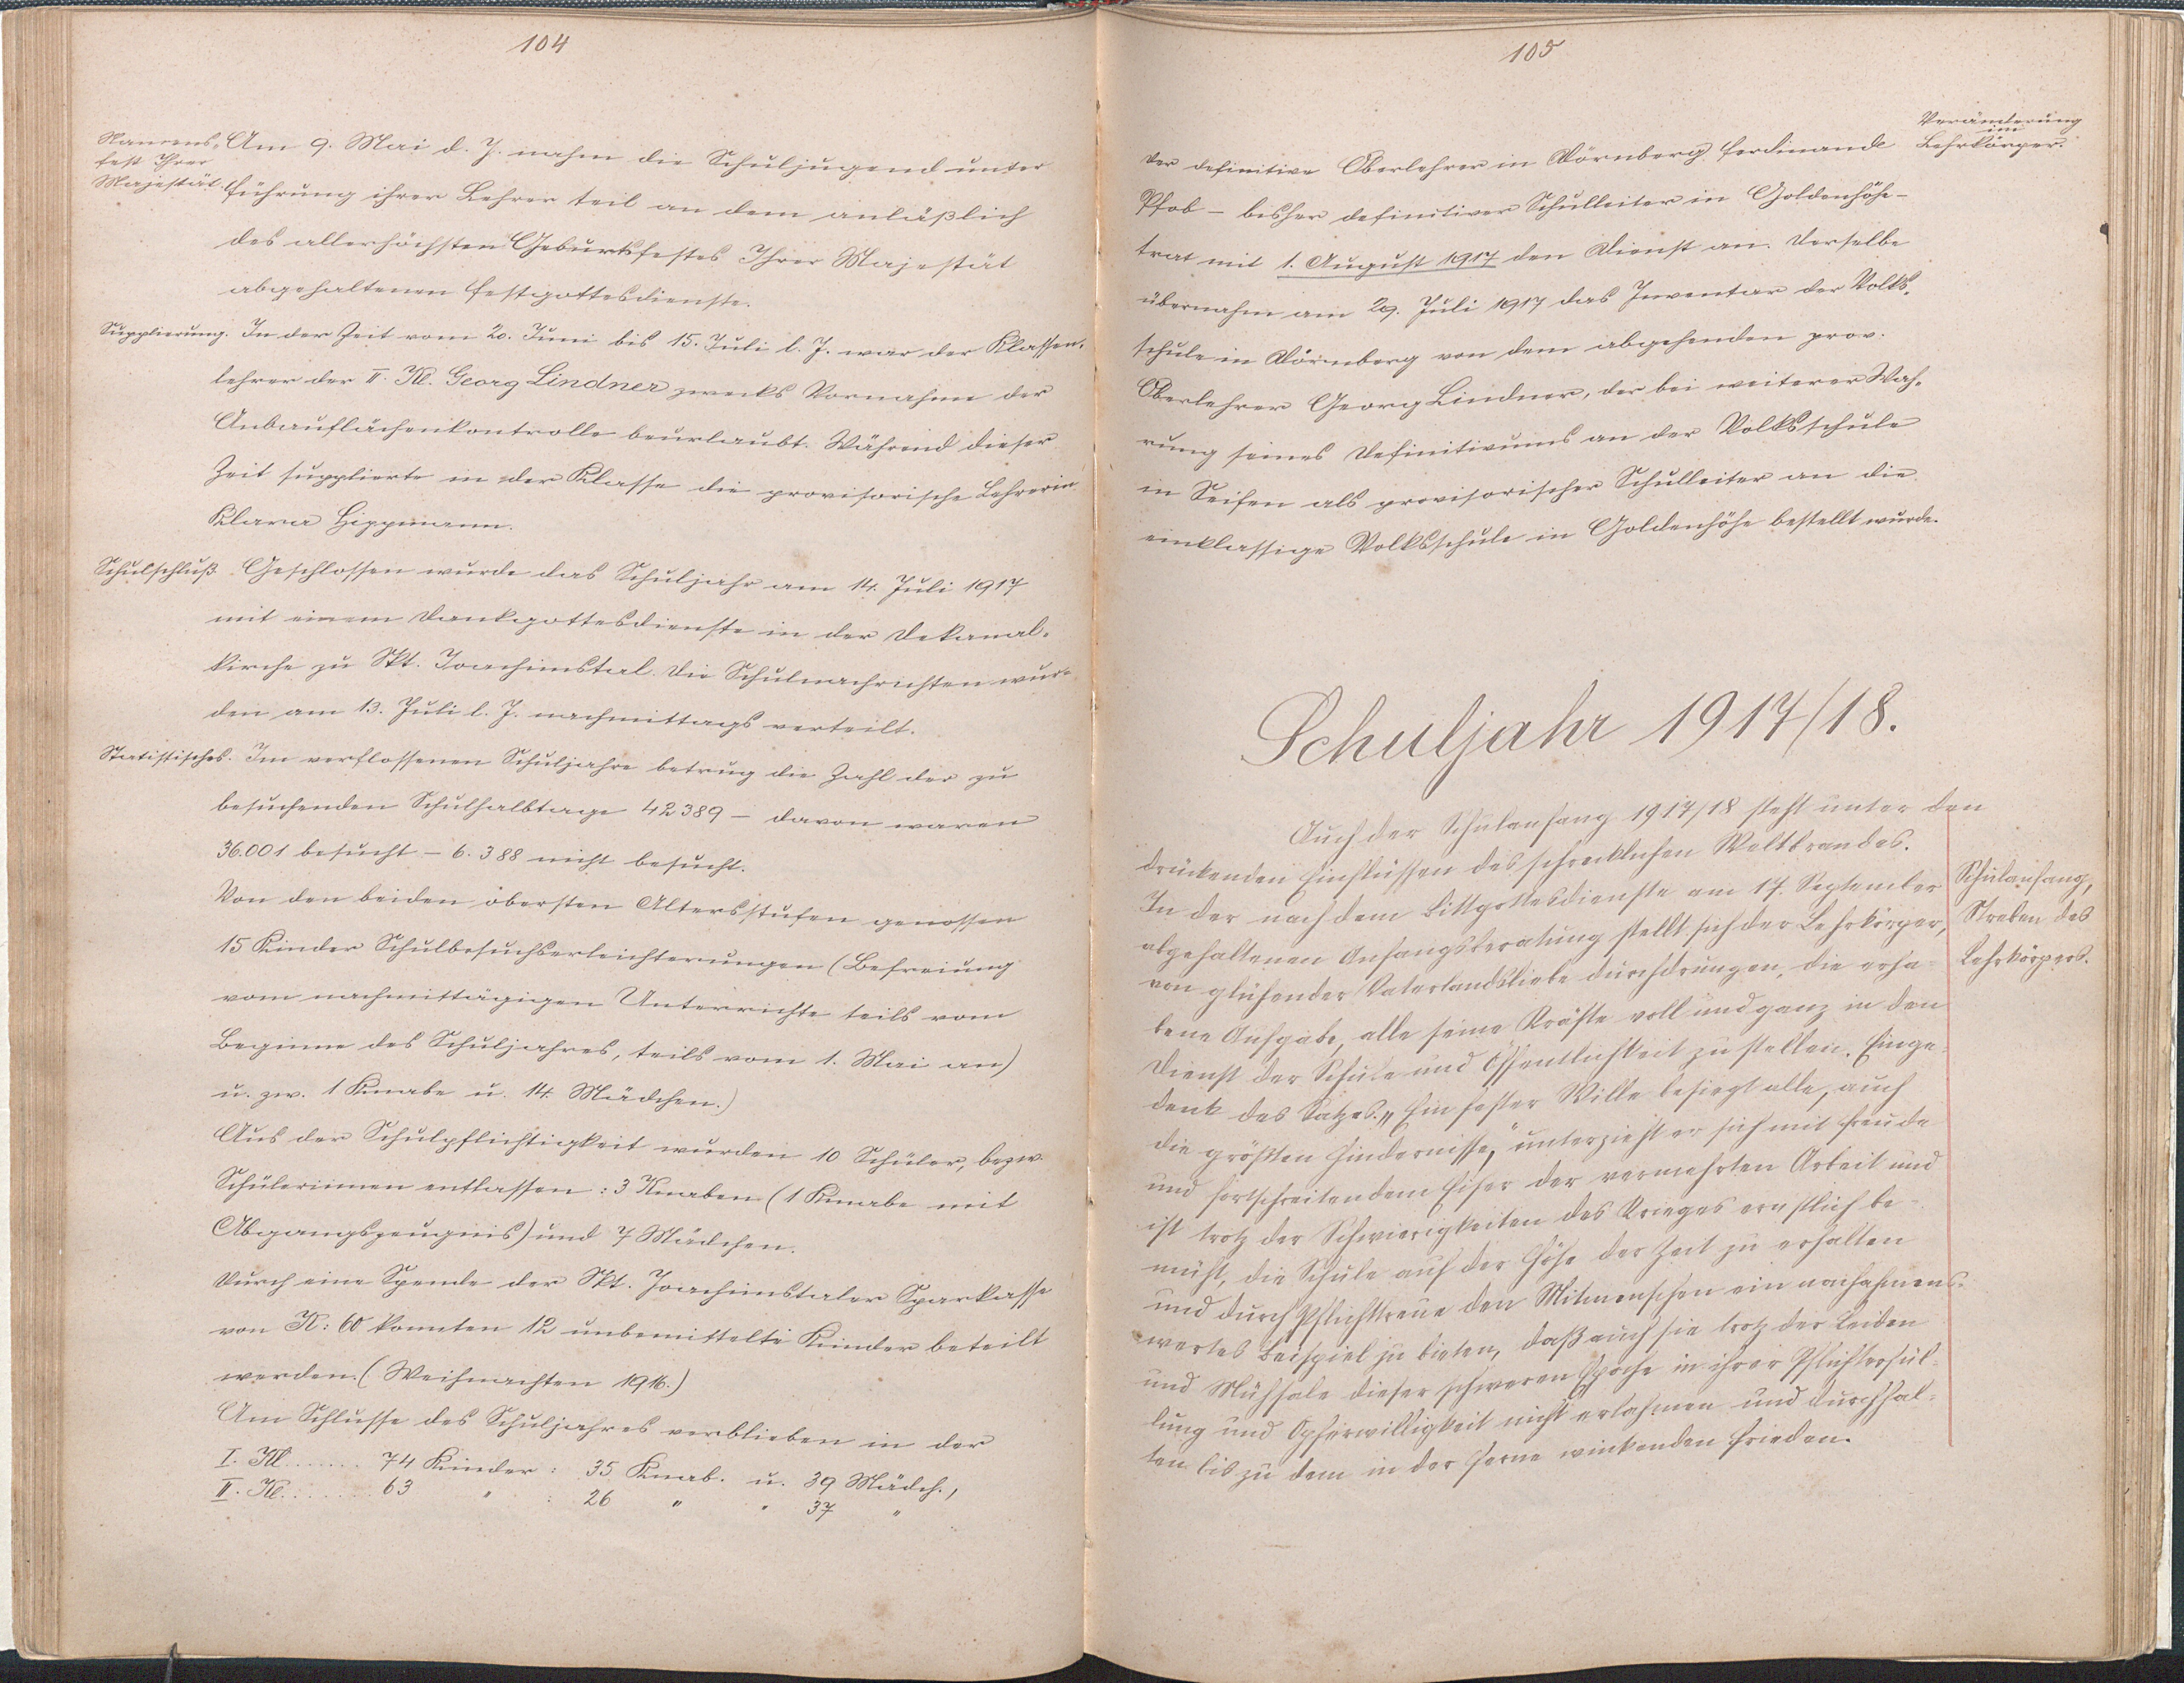 104
Namens-
fest Ihrer
Majestät.
Am 9. Mai d. J. nahm die Schuljugend unter
Führung ihrer Lehrer teil an dem anläßlich
des allerhöchsten Geburtsfestes Ihrer Majestät
abgehaltenen Festgottesdienste.
Supplierung. In der Zeit vom 20. Juni bis 15. Juli l. J. war der Klassen-
lehrer der II. Kl. Georg Lindner zwecks Vornahme der
Anbauflächenkontrolle beurlaubt. Während dieser
Zeit supplierte in der Klasse die provisorische Lehrerin
Klara Hippmann.
Schulschluß. Geschlossen wurde das Schuljahr am 14. Juli 1917
mit einem Dankgottesdienste in der Dekanal-
kirche zu Skt. Joachimstal. Die Schulnachrichten wur-
den am 13. Juli l. J. nachmittags verteilt.
Statistisches. Im verflossenen Schuljahre betrug die Zahl der zu
besuchenden Schulhalbtage 42389 – davon waren
36.001 besucht – 6.388 nicht besucht.
Von den beiden obersten Altersstufen genossen
15 Kinder Schulbesuchserleichterungen (Befreiung
vom nachmittägigen Unterrichte teils vom
Beginne des Schuljahres, teils vom 1. Mai an)
u. zw. 1 Knabe u. 14 Mädchen.)
Aus der Schulpflichtigkeit wurden 10 Schüler, bezw.
Schülerinnen entlassen: 3 Knaben (1 Knabe mit
Abgangszeugnis) und 7 Mädchen.
Durch eine Spende der Skt. Joachimstaler Sparkasse
von K: 60 konnten 12 unbemittelte Kinder beteilt
werden. (Weihnachten 1916.)
Am Schlusse des Schuljahres verblieben in der
I. Kl. ....... 74 Kinder : 35 Knab. u. 39 Mädch.,
II. Kl. ........ 63 " : 26 " " 37 "
105
Veränderung
im
Lehrkörper.
Der definitive Oberlehrer in Dörnberg Ferdinand
Pfob – bisher definitiver Schulleiter in Goldenhöhe –
trat mit 1. August 1917 den Dienst an. Derselbe
übernahm am 29. Juli 1917 das Inventar der Volks-
schule in Dörnberg von dem abgehenden prov.
Oberlehrer Georg Lindner, der bei weiterer Wah-
rung seines Definitivums an der Volksschule
in Seifen als provisorischer Schulleiter an die
einklassige Volksschule in Goldenhöhe bestellt wurde.
Schuljahr 1917/18.
Auch der Schulanfang 1917/18 steht unter den
drückenden Einflüssen des schrecklichen Weltbrandes.
Schulanfang,
Streben des
Lehrkörpers.
In der nach dem Bittgottesdienste am 17. September
abgehaltenen Anfangsberatung stellt sich der Lehrkörper,
von glühender Vaterlandsliebe durchdrungen, die erha-
bene Aufgabe, alle seine Kräfte voll und ganz in den
Dienst der Schule und Öffentlichkeit zu stellen. Einge-
denk des Satzes: „Ein fester Wille besiegt alle, auch
die größten Hindernisse," unterzieht er sich mit Freude
und fortschreitendem Eifer der vermehrten Arbeit und
ist trotz der Schwierigkeiten des Krieges ernstlich be-
müht, die Schule auf der Höhe der Zeit zu erhalten
und durch Pflichttreue den Mitmenschen ein nachahmens-
wertes Beispiel zu bieten, daß auch sie trotz der Leiden
und Mühsale dieser schweren Epoche in ihrer Pflichterfül-
lung und Opferwilligkeit nicht erlahmen und durchhal-
ten bis zu dem in der Ferne winkenden Frieden.